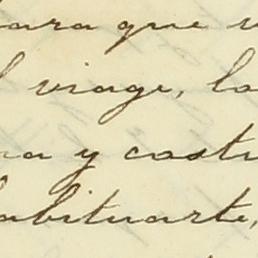 para que v
l viage, la
na y costu
habituarte,